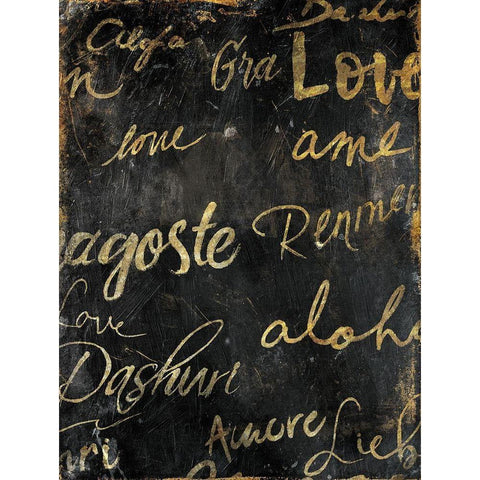 Gra Love
love ame
agoste Renmen
Love aloh
Dashuri
Amore Lieb
uri